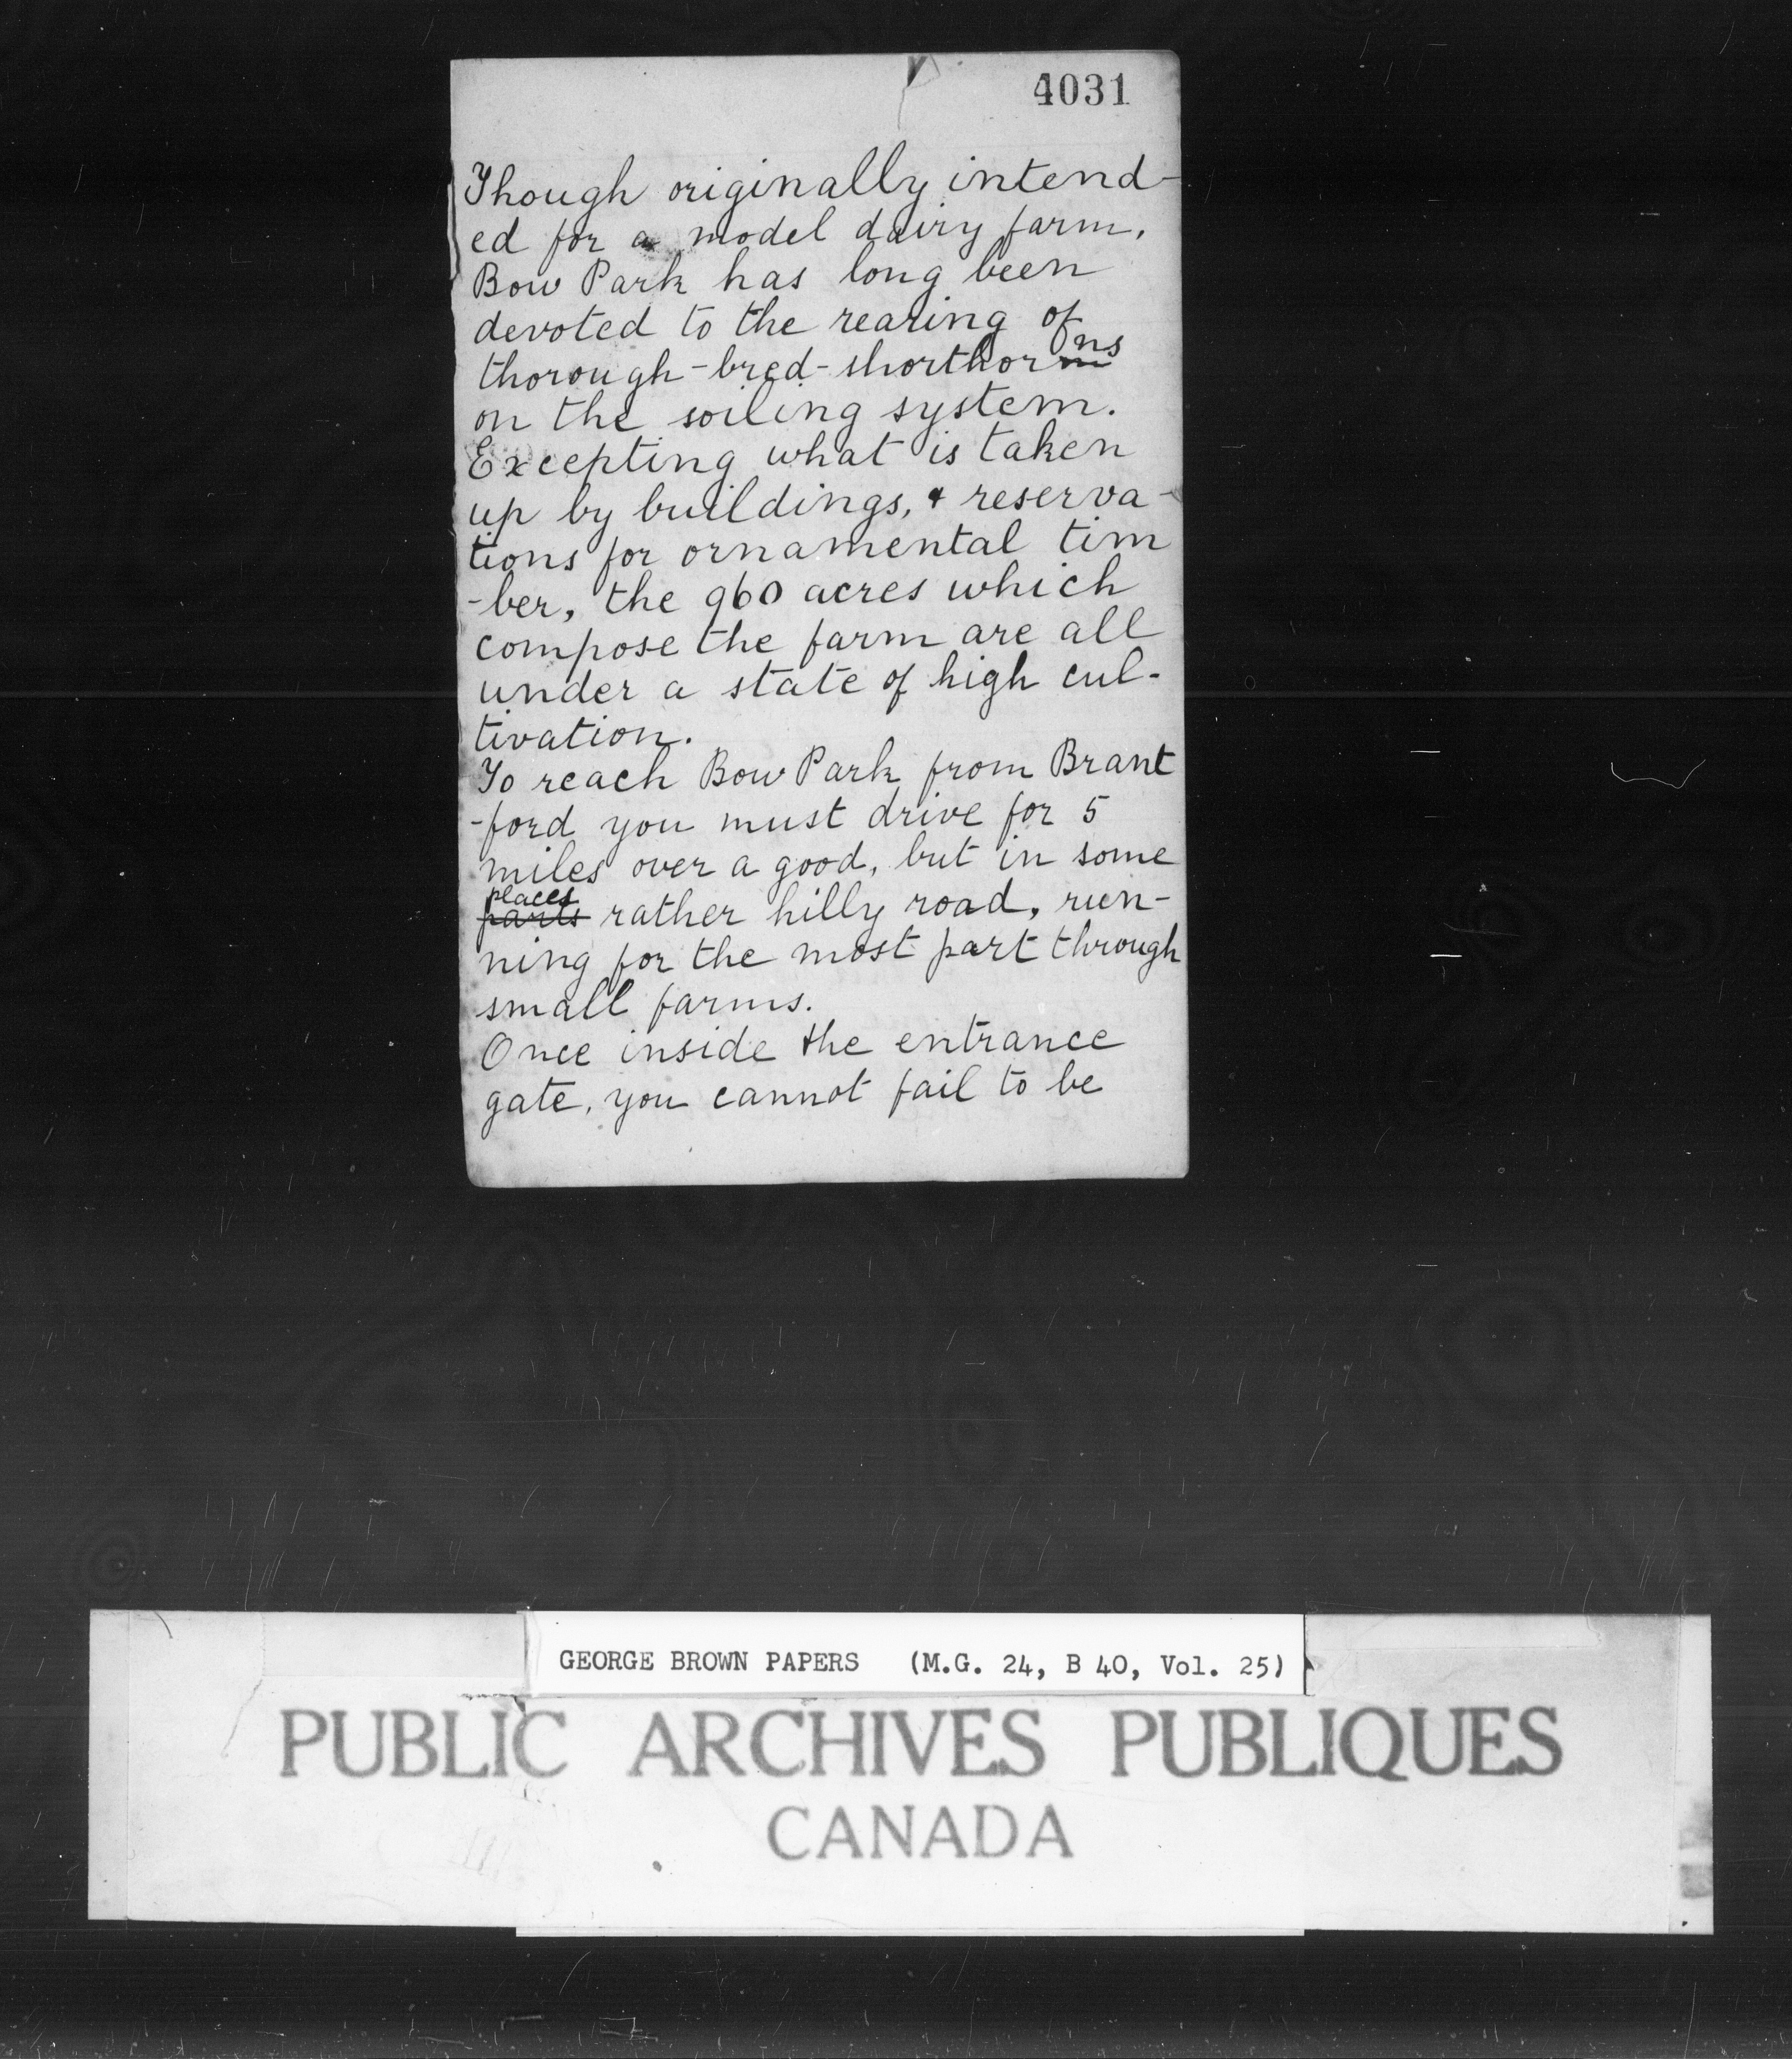 4031
Though originally intend-
ed for a model dairy farm,
Bow Park has long been
devoted to the rearing of
ns
thorough-bred-shorthorns
on the soiling system.
Excepting what is taken
up by buildings, & reserva-
tions for ornamental tim
-ber, the 960 acres which
compose the farm are all
under a state of high cul-
tivation.
To reach Bow Park from Brant
-ford you must drive for 5
miles over a good, but in some
places
parts rather hilly road, run-
ning for the most part through
small farms.
Once inside the entrance
gate, you cannot fail to be
GEORGE BROWN PAPERS (M.G. 24, B 40, Vol. 25)
PUBLIC ARCHIVES PUBLIQUES
CANADA